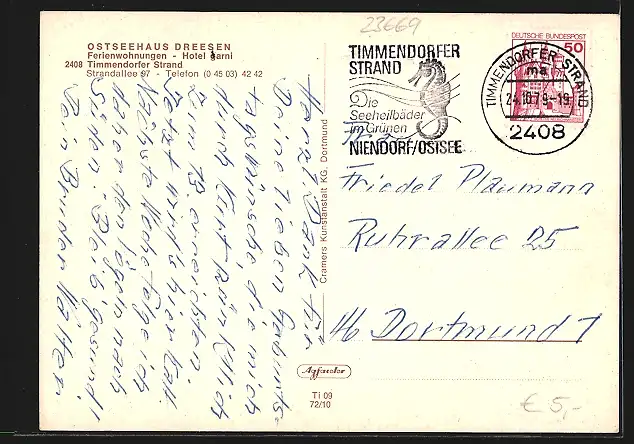 23669
OSTSEEHAUS DREESEN
Ferienwohnungen - Hotel garni
2408 Timmendorfer Strand
Strandallee 97 - Telefon (0 45 03) 42 42
TIMMENDORFER
STRAND
Die
Seeheilbäder
im Grünen
NIENDORF/OSTSEE
DEUTSCHE BUNDESPOST
50
TIMMENDORFER STRAND
ma
24.10.79-19
2408
Herzl. Dank für
D. lieben Geburts-
tagswünsche, die mich
durch Kurt pünktlich
zum 13. erreichten.
Jetzt wird's hier kalt
Nächste Woche folge ich
daher den Vögeln nach
Süden. Bleib gesund!
Dein Bruder Walter
Cramers Kunstanstalt KG, Dortmund
Friedel Plaumann
Ruhrallee 25
46 Dortmund 1
Agfacolor
Ti 09
72/10
€ 5,-